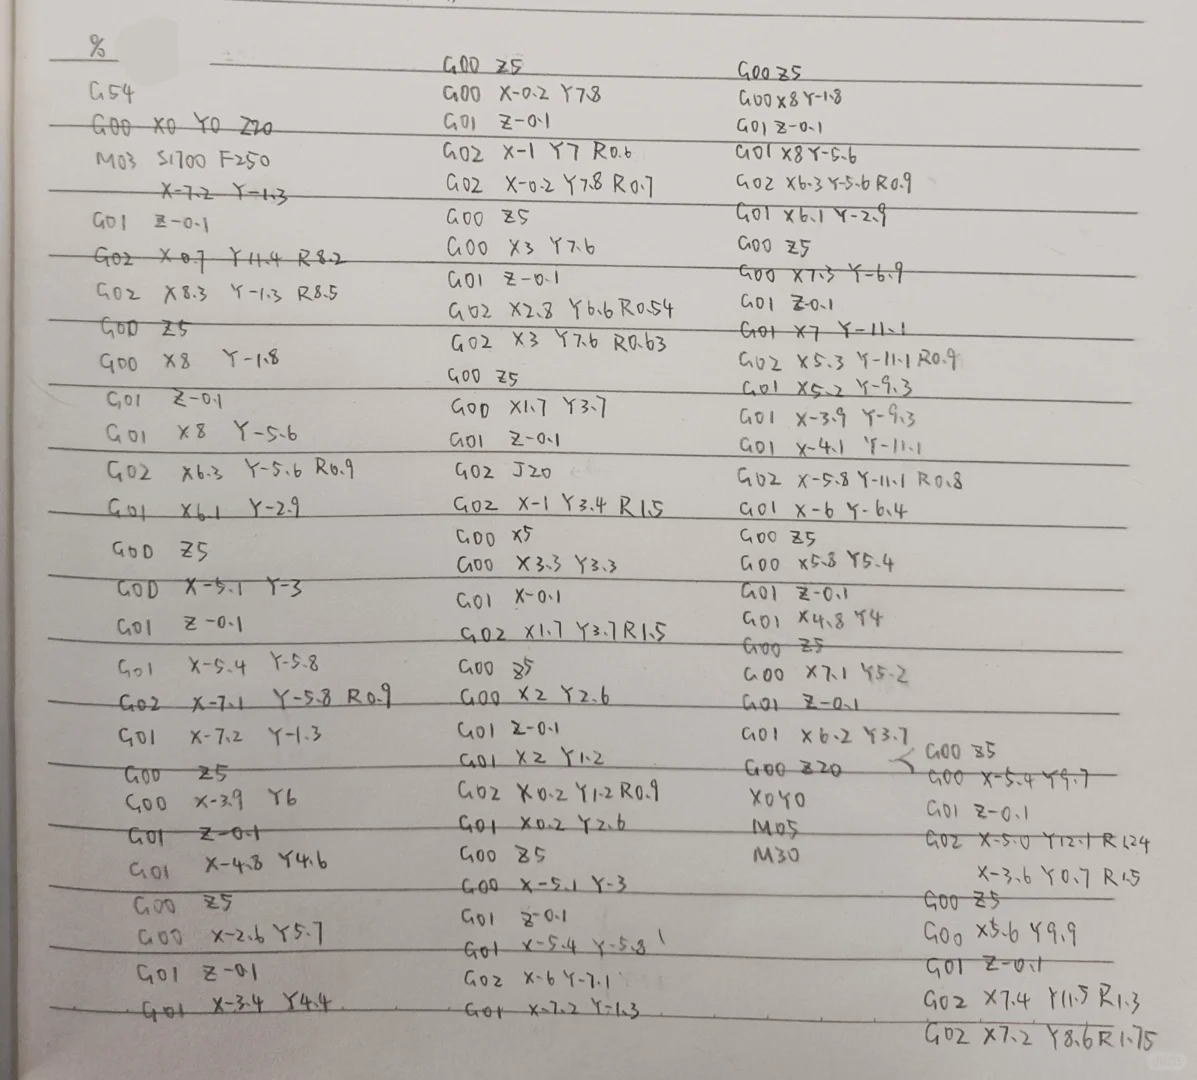 %
G54
G00 X0 Y0 Z20
M03 S1700 F250
X-7.2 Y-1.3
G01 Z-0.1
G02 X0.7 Y11.4 R8.2
G02 X8.3 Y-1.3 R8.5
G00 Z5
G00 X8 Y-1.8
G01 Z-0.1
G01 X8 Y-5.6
G02 X6.3 Y-5.6 R0.9
G01 X6.1 Y-2.9
G00 Z5
G00 X-5.1 Y-3
G01 Z-0.1
G01 X-5.4 Y-5.8
G02 X-7.1 Y-5.8 R0.9
G01 X-7.2 Y-1.3
G00 Z5
G00 X-3.9 Y6
G01 Z-0.1
G01 X-4.8 Y4.6
G00 Z5
G00 X-2.6 Y5.7
G01 Z-0.1
G01 X-3.4 Y4.4
G00 Z5
G00 X-0.2 Y7.8
G01 Z-0.1
G02 X-1 Y7 R0.6
G02 X-0.2 Y7.8 R0.7
G00 Z5
G00 X3 Y7.6
G01 Z-0.1
G02 X2.8 Y6.6 R0.54
G02 X3 Y7.6 R0.63
G00 Z5
G00 X1.7 Y3.7
G01 Z-0.1
G02 J20
G02 X-1 Y3.4 R1.5
G00 X5
G00 X3.3 Y3.3
G01 X-0.1
G02 X1.7 Y3.7 R1.5
G00 Z5
G00 X2 Y2.6
G01 Z-0.1
G01 X2 Y1.2
G02 X0.2 Y1.2 R0.9
G01 X0.2 Y2.6
G00 Z5
G00 X-5.1 Y-3
G01 Z-0.1
G01 X-5.4 Y-5.8
G02 X-6 Y-7.1
G01 X-7.2 Y-1.3
G00 Z5
G00 X8 Y-1.8
G01 Z-0.1
G01 X8 Y-5.6
G02 X6.3 Y-5.6 R0.9
G01 X6.1 Y-2.9
G00 Z5
G00 X7.3 Y-6.9
G01 Z-0.1
G01 X7 Y-11.1
G02 X5.3 Y-11.1 R0.9
G01 X5.2 Y-9.3
G01 X-3.9 Y-9.3
G01 X-4.1 Y-11.1
G02 X-5.8 Y-11.1 R0.8
G01 X-6 Y-6.4
G00 Z5
G00 X5.8 Y5.4
G01 Z-0.1
G01 X4.8 Y4
G00 Z5
G00 X7.1 Y5.2
G01 Z-0.1
G01 X6.2 Y3.7
G00 Z20
X0Y0
M05
M30
G00 Z5
G00 X-5.4 Y9.7
G01 Z-0.1
G02 X-5.0 Y12.1 R1.24
X-3.6 Y0.7 R1.5
G00 Z5
G00 X5.6 Y9.9
G01 Z-0.1
G02 X7.4 Y11.5 R1.3
G02 X7.2 Y8.6 R1.75